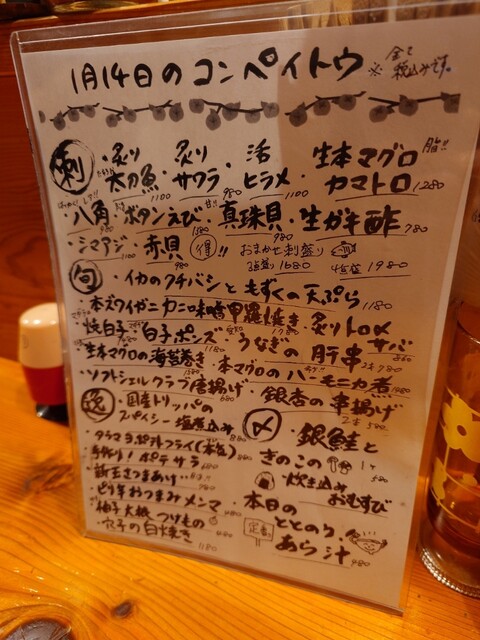 1月14日のコンペイトウ ※全て税込みです。
刺
・炙り太刀魚 1100
炙りサワラ 980
・活ヒラメ 1100
生本マグロカマトロ 脂!! 1280
・八角
・ボタンえび 1380
・真珠貝 980
・生ガキ酢 780
・シマアジ
・赤貝
得!! おまかせ刺盛り
3点盛り 1680 4点盛 1980
旬
・イカのクチバシともずくの天ぷら 1180
・本ズワイガニカニ味噌甲羅焼き
・炙りトロ〆サバ 880
・焼白子
・白子ポンズ
・うなぎの肝串 2本 780
・生本マグロの海苔巻き
・本マグロのハーモニカ煮 980
・ソフトシェルクラブ唐揚げ 680
・銀杏の串揚げ 2本 580
逸
・国産トリッパのスパイシー塩煮込み 880
・タラマヨポテトフライ(本気) 880
・手作り!ポテサラ 680
・新玉さつまあげ
・ピリ辛おつまみメンマ
・柚子大根つけもの 480
・穴子の白焼き 1180
〆
・銀鮭ときのこの炊き込みおむすび 1ケ 580
・本日のととのう、あら汁 480
定番!